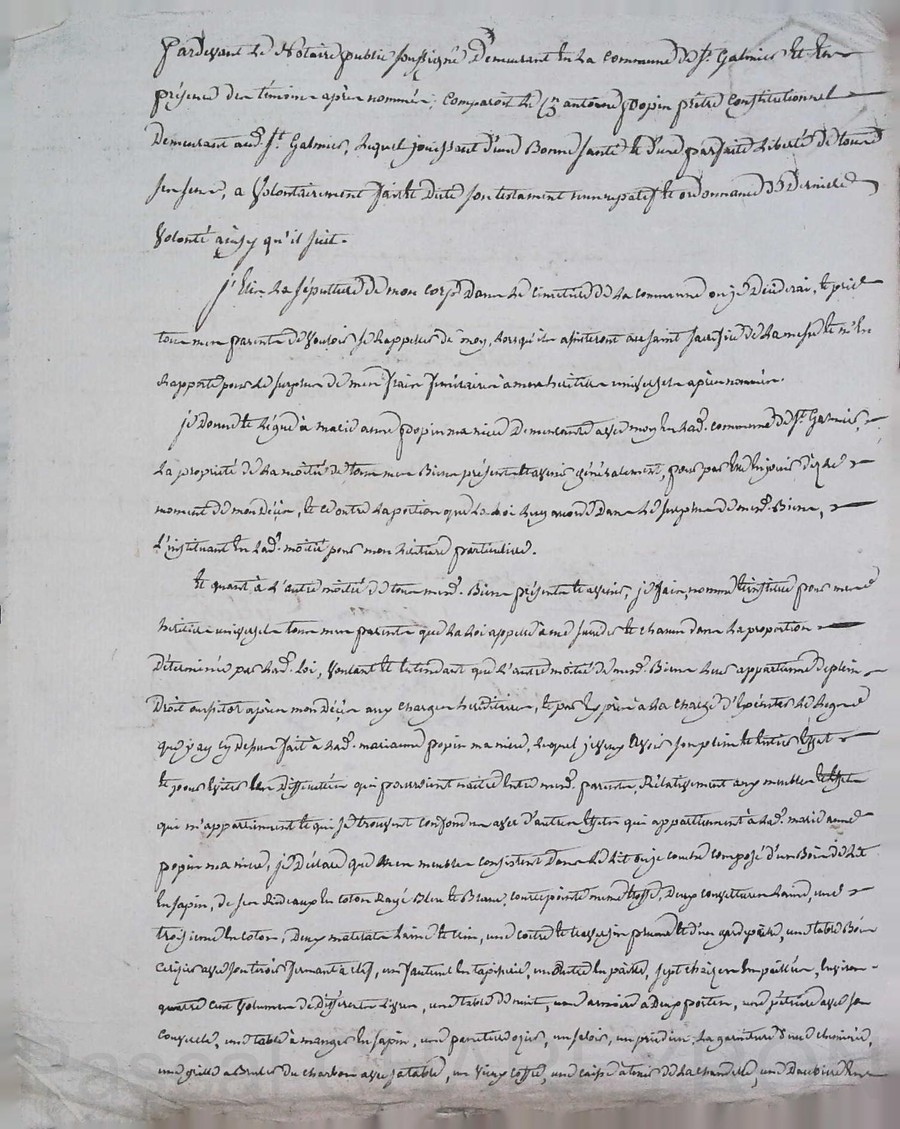 Pardevant le Notaire public soussigné Demeurant en la commune de St. Galmier et en
présence des témoins après nommés, comparoit le Cn antoine popin prêtre Constitutionnel
Demeurant aud. St. Galmier, lequel jouissant d'une Bonne santé et d'une parfaite Liberté de tous
ses sens, a Volontairement fait et dicté son testament nuncupatif et ordonnance de Derniere
Volonté ainsy qu'il suit.
J'Elis la sépulture de mon corps Dans le cimetiere de la commune ou je Décéderai, et prie
tous mes parents de Vouloir se Rappeler de moy, lorsqu'ils assisteront au saint sacrifice de la messe et m'en
Rapporte pour le surplus de mes frais funéraires à mes héritiers universels après nommés.
je Donne et Légue à marie anne popin ma niece Demeurante avec moy en lad. commune de St. Galmier,
La propriété de la moitié de tous mes Biens présents et avenir généralement, pour par elle en jouir dès le
moment de mon Décès, et ce outre la portion que la loi luy accorde Dans le surplus de mesd. Biens,
L'instituant en lad. moitié pour mon héritiere particuliere.
Et quant à L'autre moitié de tous mesd. Biens présents et avenir, je fais, nomme et institue pour mes
héritiers universels tous mes parents que la Loi appelle à me succéder et chacun dans la proportion
Déterminée par lad. Loi, Voulant et Entendant que L'autre moitié de mesd. Biens leur appartienne de plein
Droit aussitot après mon Décès aux charges héréditaires, et par Exprès à la charge d'Exécuter le Legs
que j'ay cy dessus fait à lad. marianne popin ma niece, lequel je veux avoir son plein et entier Effet
et pour Eviter les Difficultés qui pourroient naître entre mesd. parents, Relativement aux meubles et effets
qui m'appartiennent et qui se trouvent confondus avec d'autres Effets qui appartiennent à lad. marie anne
popin ma niece, je Déclare que mes meubles consistent Dans le Lit ou je couche composé d'un Bois de Lit
En sapin, de ses Rideaux en coton Rayé Bleu et Blanc, courtepointe meme étoffe, Deux couvertures Laine, une
troisieme en coton, Deux matelats Laine et crin, une coitre et traversin plume et d'un gardepaille, une table Bois
Cerisier avec son tiroir fermant à clef, un fauteuil en tapisserie, un autre en paille, sept chaises en paille, Environ
quatre cent Volumes de Différents Livres, une table de nuit, une armoire a Deux portes, une pétriere avec son
Couvercle, une table à manger en sapin, un saloir, un priedieu, La garniture d'une cheminée,
une grille a Bruler du charbon avec sa table, un Vieux coffre, une caisse à tenir de la chandelle, une